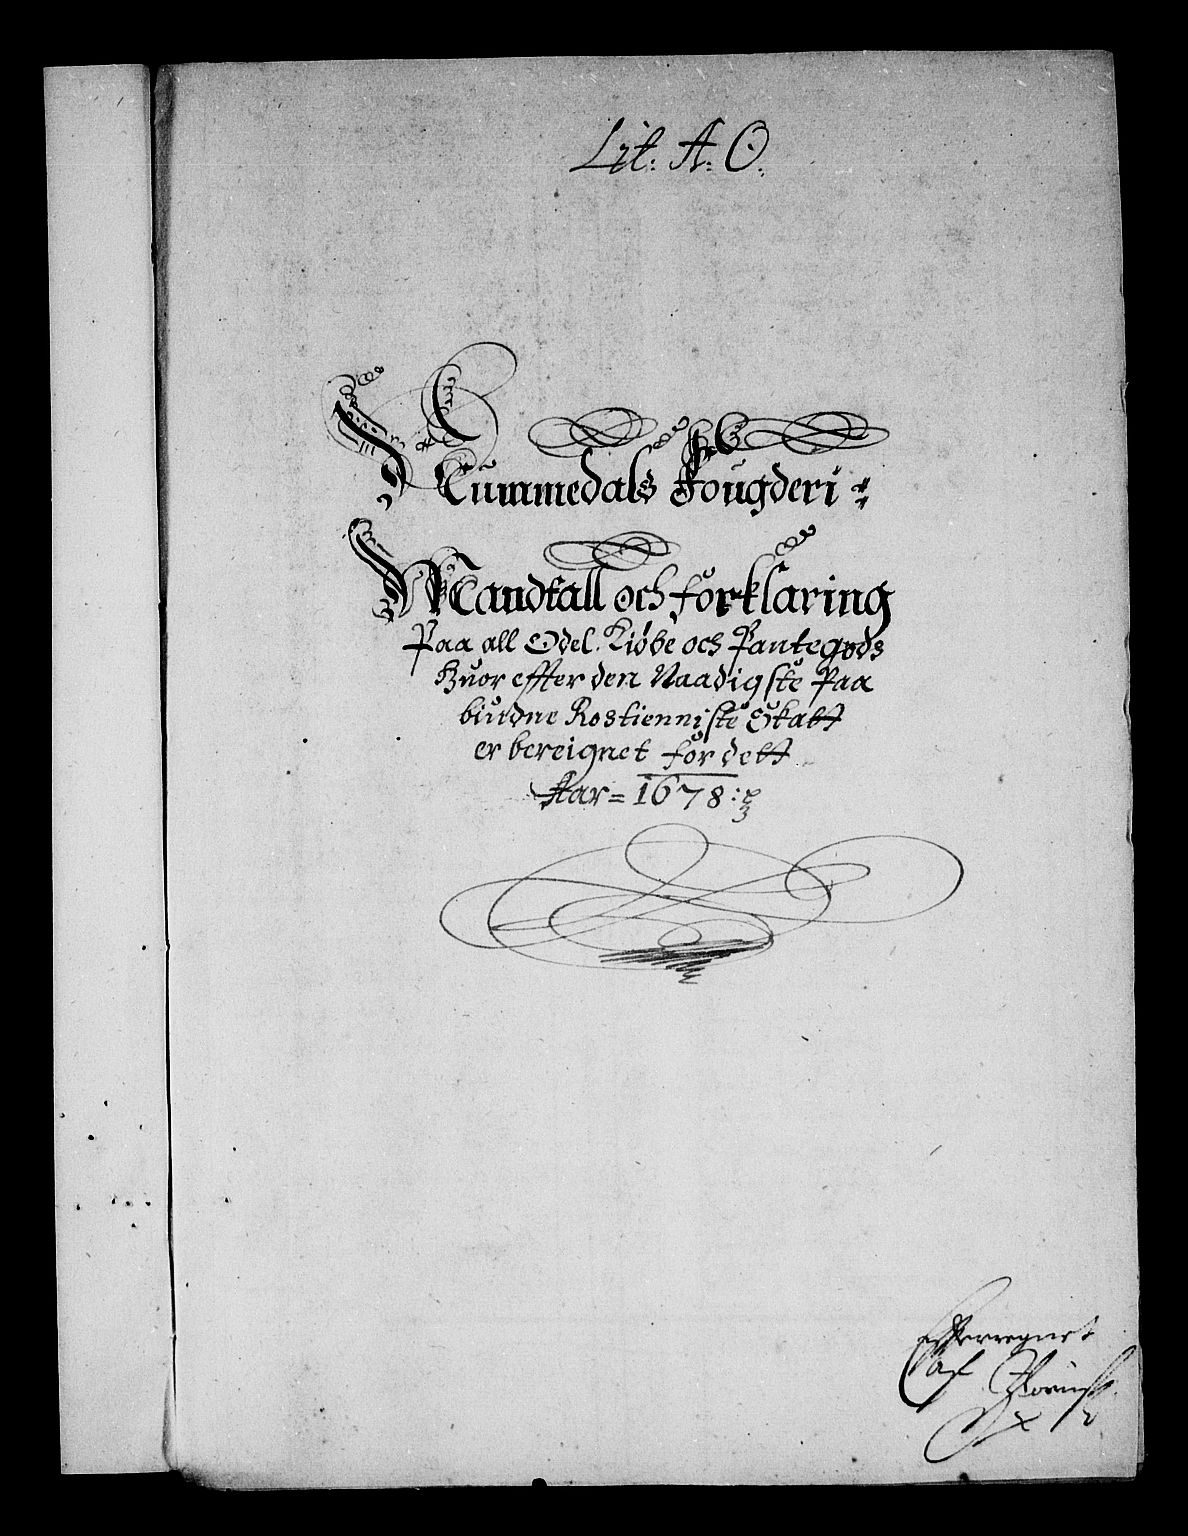 Lit: A: O:
Nummedals Fougderi
Mandtall och forklaring
Paa all Odel. Kiøbe och Pantegods
Huor effter den Naadigste Paa
biudne Rostienniste Skatt
er bereignet for dett
Aar = 1678:
Effterregnet
af